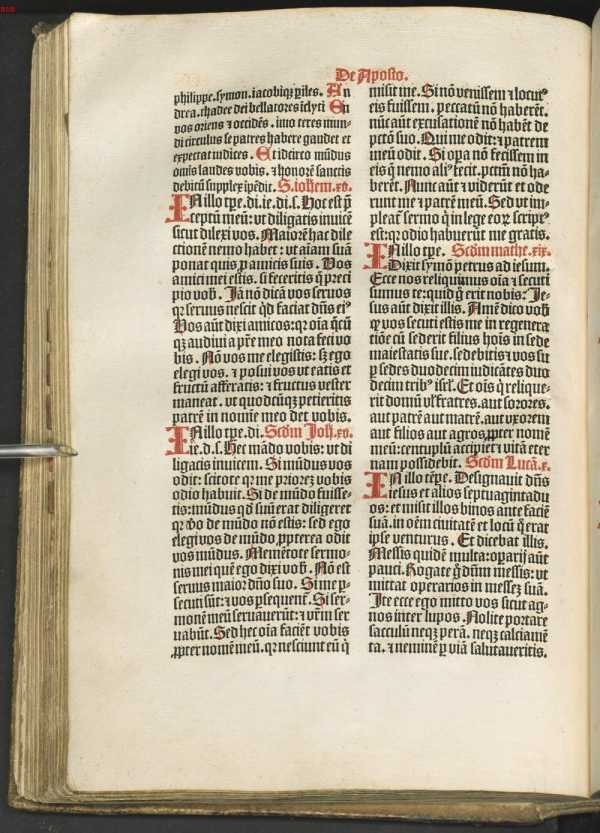 De Aposto.
philippe. symon. iacobiqꝫ ꝑiles. An
drea. thadee dei bellatores iclyti En
vos oriens ⁊ occidēs. imo teres mun-
di circulus se patres habere gaudet et
expectat iudices. Et idcirco mūdus
om̄is laudes vobis. ⁊ honorē sanctis
debitū supplex īpēdit. S. iohem. xv.
IN illo tp̄e. di. ie. di. s. Hoc est p̄
ceptū meū: vt diligatis inuicē
sicut dilexi vos. Maiorē hac dile
ctionē nemo habet: vt aīam suā
ponat quis ꝓ amicis suis. Vos
amici mei estis. si feceritis q̄ preci
pio vob̄. Iā nō dicā vos seruos
qꝛ seruus nescit qd faciat dn̄s eiꝰ
Vos aūt dixi amicos: qꝛ oīa q̄cū
qꝫ audiui a pr̄e meo nota feci vo
bis. Nō vos me elegistis: sꝫ ego
elegi vos. ⁊ posui vos vt eatis et
fructū afferatis: ⁊ fructus vester
maneat. vt quodcūqꝫ petieritis
patrē in nomīe meo det vobis.
IN illo tp̄e. di. Scd̄m Joh̄. xv.
ie. d. s. Hec mādo vobis: vt di
ligatis inuicem. Si mūdus vos
odit: scitote qꝛ me priorez vobis
odio habuit. Si de mūdo fuisse-
tis: mūdus qd suū erat diligeret
qꝛ ꝟo de mūdo nō estis: sed ego
elegi vos de mūdo. ꝓpterea odit
vos mūdus. Memētote sermo-
nis mei quē ego dixi vob̄. Nō est
seruus maior dn̄o suo. Si me ꝑ-
secuti sūt: ⁊ vos ꝑsequent̄. Si ser-
monē meū seruauerūt: ⁊ vr̄m ser
uabūt. Sed hec oīa faciēt vobis
ꝓpter nomē meū. qꝛ nesciunt eū q̇
misit me. Si nō venissem ⁊ locutꝰ
eis fuissem. peccatū nō haberēt.
nūc aūt excusationē nō habēt de
pctō suo. Qui me odit: ⁊ patrem
meū odit. Si opa nō fecissem in
eis q̄ nemo aliꝰ fecit. pctm̄ nō ha-
berēt. Nunc aūt ⁊ viderūt et ode
runt me ⁊ patrē meū. Sed vt im-
pleat̄ sermo q̇ in lege eoꝝ scriptꝰ
est: qꝛ odio habuerūt me gratis.
IN illo tp̄e. Scd̄m mathe. xix.
Dixit symō petrus ad iesum.
Ecce nos reliquimus oīa ⁊ secuti
sumus te: quid g̊ erit nobis: Je-
sus aūt dixit illis. Amē dico vob̄
ꝙ vos secuti estis me in regenera
tiōe cū sederit filius hoīs in sede
maiestatis sue. sedebitis ⁊ vos sup
ꝑ sedes duodecim iudicātes duo
decim tribꝰ isrl̄. Et oīs q̇ relique-
rit domū vl̓ fratres. aut sorores.
aut patrē aut matrē. aut vxorem
aut filios aut agros. ꝓpter nomē
meū: centuplū accipiet ⁊ vitā eter
nam possidebit. Scd̄m Lucā. x.
IN illo tēpe. Designauit dn̄s
iesus et alios septuagintadu
os: et misit illos binos ante faciē
suā. in oēm ciuitatē et locū q̇ erat
ipse venturus. Et dicebat illis.
Messis quidē multa: oꝑarij aūt
pauci. Rogate g̊ dn̄m messis: vt
mittat operarios in messez suā.
Ite ecce ego mitto vos sicut ag-
nos inter lupos. Nolite portare
sacculū neqꝫ perā. neqꝫ calciamē
ta. ⁊ neminē ꝑ viā salutaueritis.